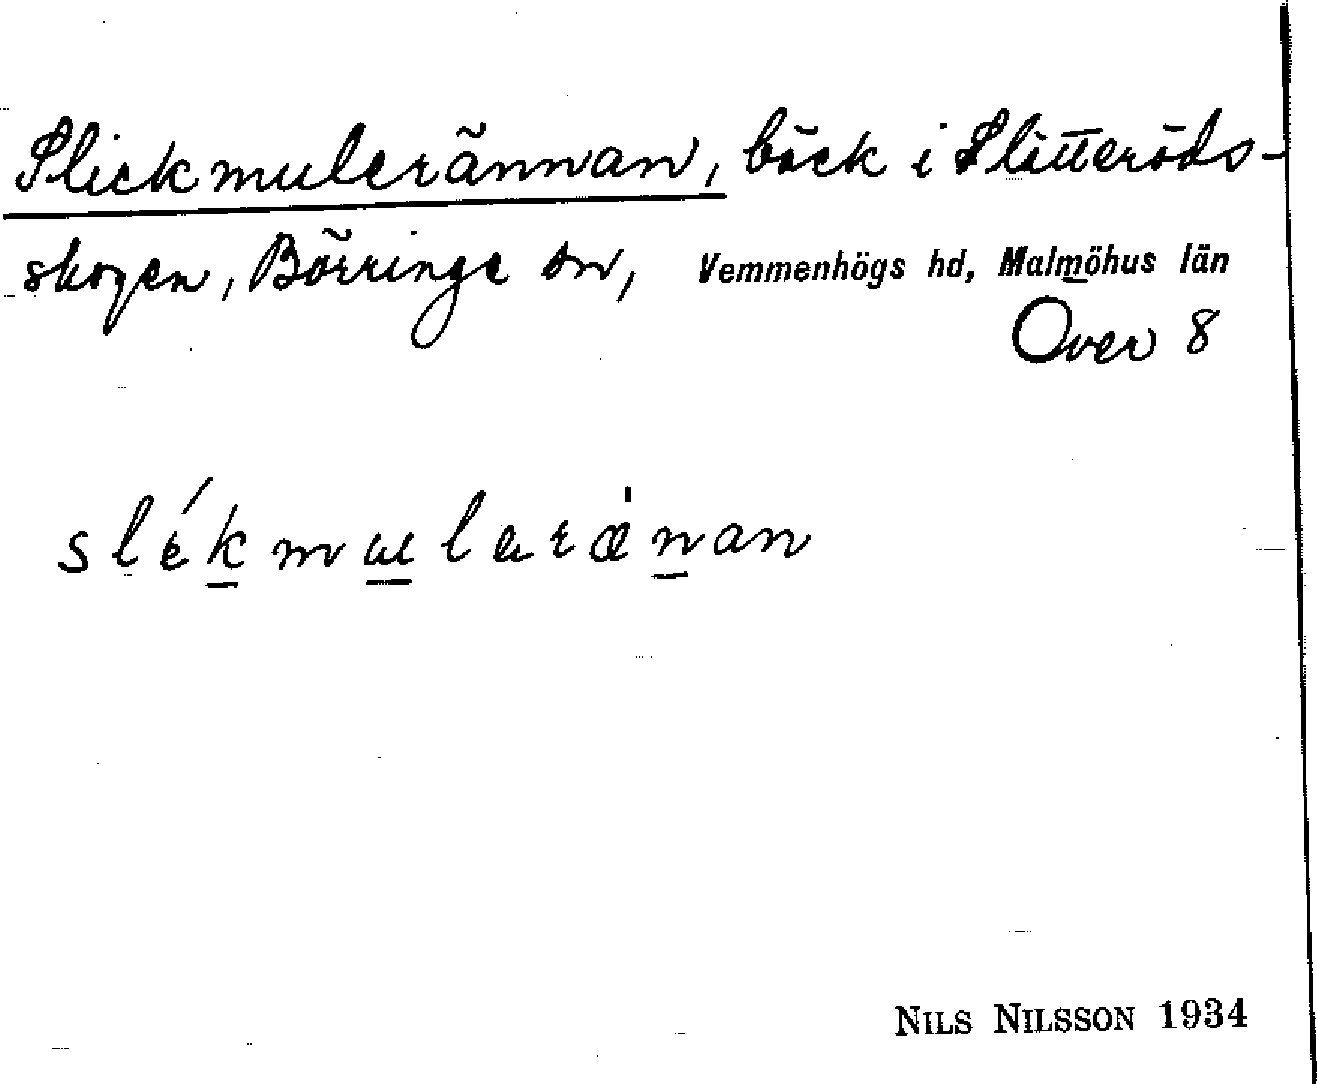 Slickmulerännan, bäck i Slätteröds-
skogen, Börringe sn, Vemmenhögs hd, Malmöhus län
Oxen 8
slékmulerænan
NILS NILSSON 1934